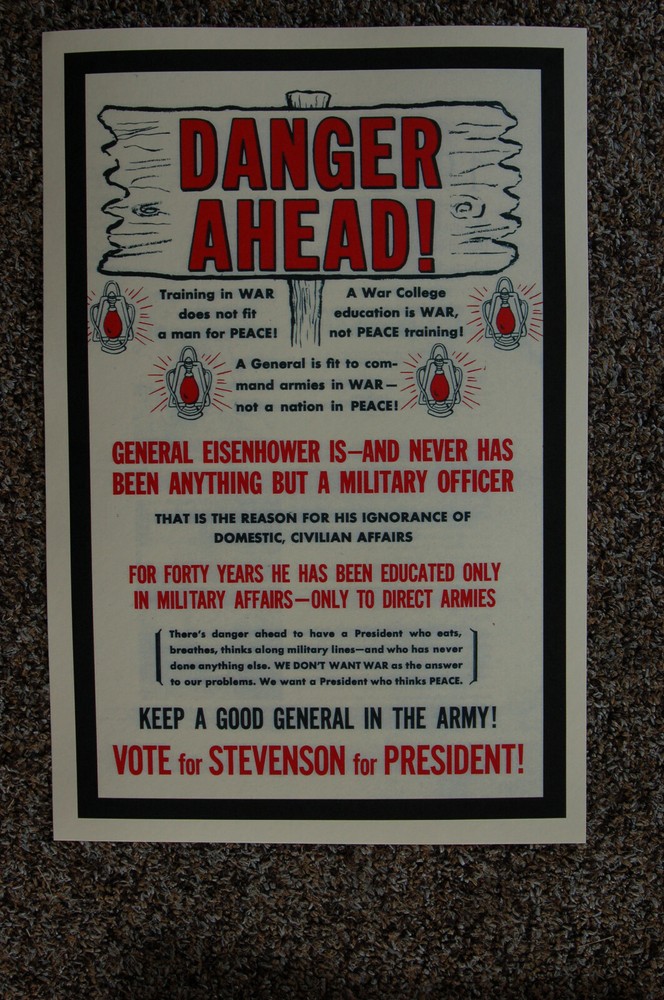 DANGER
AHEAD!
Training in WAR
does not fit
a man for PEACE!
A War College
education is WAR,
not PEACE training!
A General is fit to com-
mand armies in WAR—
not a nation in PEACE!
GENERAL EISENHOWER IS—AND NEVER HAS
BEEN ANYTHING BUT A MILITARY OFFICER
THAT IS THE REASON FOR HIS IGNORANCE OF
DOMESTIC, CIVILIAN AFFAIRS
FOR FORTY YEARS HE HAS BEEN EDUCATED ONLY
IN MILITARY AFFAIRS—ONLY TO DIRECT ARMIES
There's danger ahead to have a President who eats,
breathes, thinks along military lines—and who has never
done anything else. WE DON'T WANT WAR as the answer
to our problems. We want a President who thinks PEACE.
KEEP A GOOD GENERAL IN THE ARMY!
VOTE for STEVENSON for PRESIDENT!